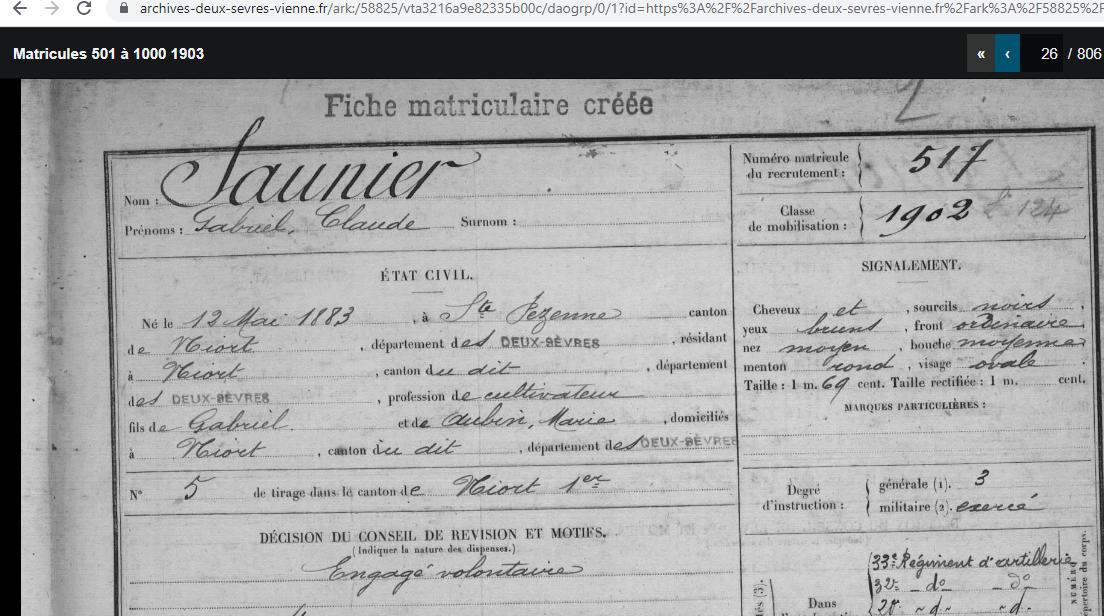 archives-deux-sevres-vienne.fr/ark:/58825/vta3216a9e82335b00c/daogrp/0/1?id=https%3A%2F%2Farchives-deux-sevres-vienne.fr%2Fark%3A%2F58825%2F
Matricules 501 à 1000 1903
« ‹ 26 / 806
Fiche matriculaire créée
Nom : Saunier
Prénoms : Gabriel, Claude Surnom :
Numéro matricule du recrutement : 517
Classe de mobilisation : 1902
ÉTAT CIVIL.
Né le 12 Mai 1883, à Ste Pezenne canton
de Niort, département des DEUX-SÈVRES, résidant
à Niort, canton du dit, département
des DEUX-SÈVRES, profession de cultivateur
fils de Gabriel et de Aubin, Marie, domiciliés
à Niort, canton du dit, département des DEUX-SÈVRES
N° 5 de tirage dans le canton de Niort 1er
DÉCISION DU CONSEIL DE REVISION ET MOTIFS.
(Indiquer la nature des dispenses.)
Engagé volontaire
SIGNALEMENT.
Cheveux et, sourcils noirs,
yeux bruns, front ordinaire,
nez moyen, bouche moyenne,
menton rond, visage ovale.
Taille : 1 m. 69 cent. Taille rectifiée : 1 m. cent.
MARQUES PARTICULIÈRES :
Degré d'instruction : générale (1). 3
militaire (2). exercé
33e Régiment d'artillerie
32e - do - do
20e - d - d.
Dans
NUMÉRO
répertoire du corps.